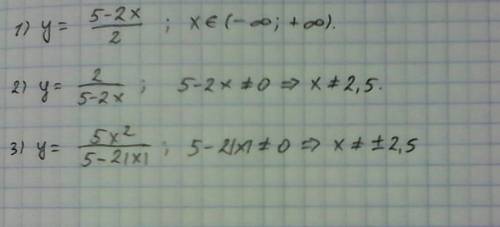 1) y = (5-2x)/2 ; x ∈ (-∞; +∞).
2) y = 2/(5-2x) ; 5-2x ≠ 0 ⇒ x ≠ 2,5.
3) y = 5x²/(5-2|x|) ; 5-2|x| ≠ 0 ⇒ x ≠ ± 2,5